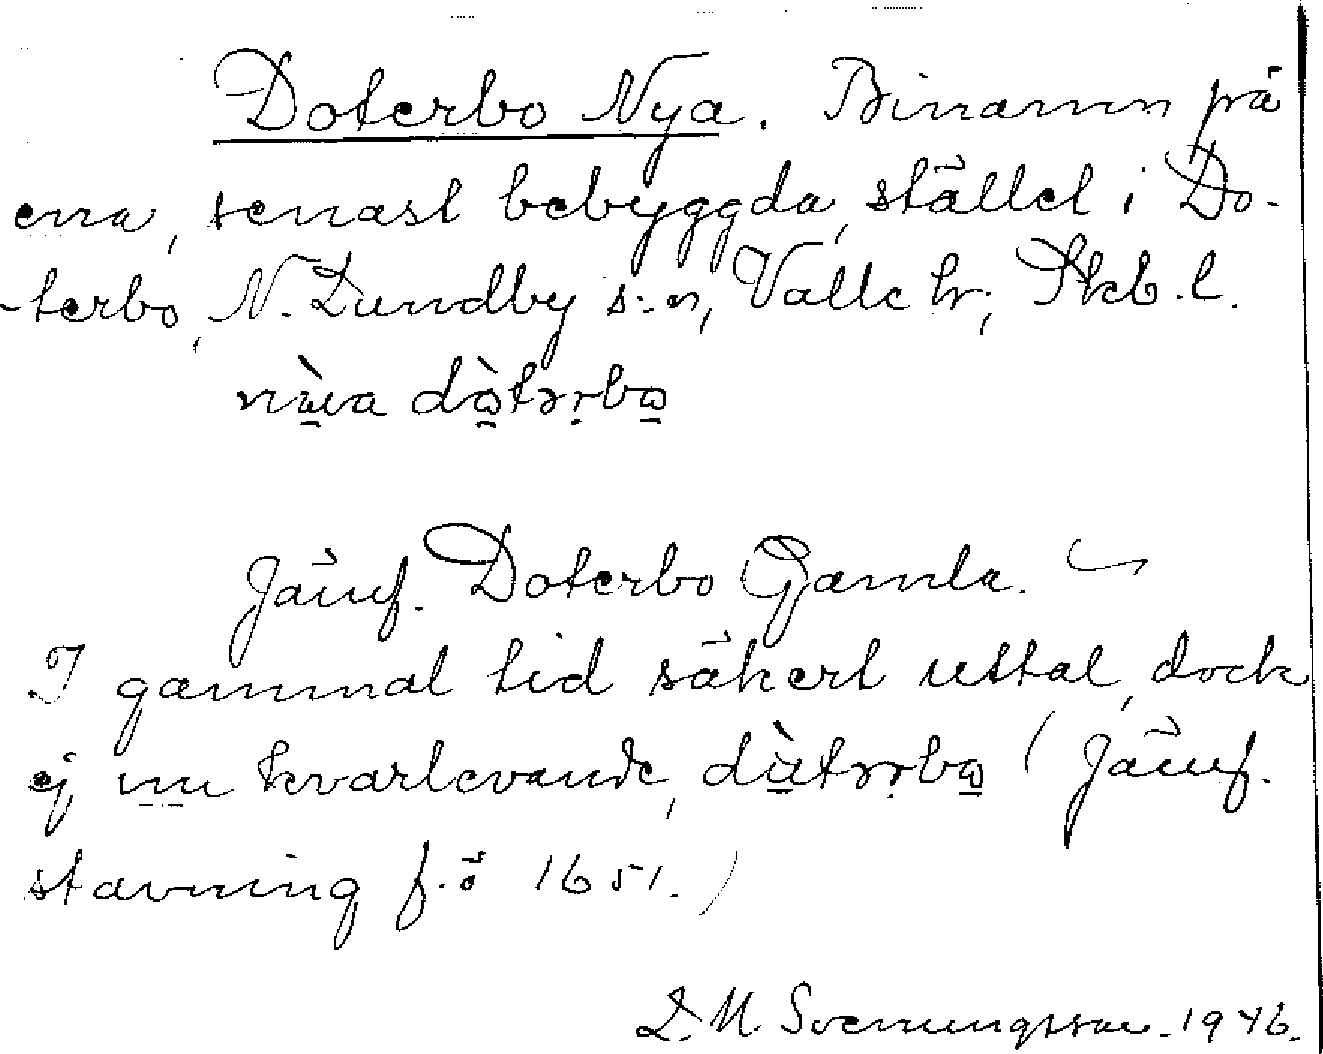 Doterbo Nya. Binamn på
ena, senast bebyggda, stället i Do-
-terbo, N. Lundby s:n, Valle hr; Skb. l.
Jämf. Doterbo Gamla.
I gammal tid säkert uttal, dock
ej nu kvarlevande, (Jämf.
stavning f. ö 1651.)
L. M Svenungsson. 1946.